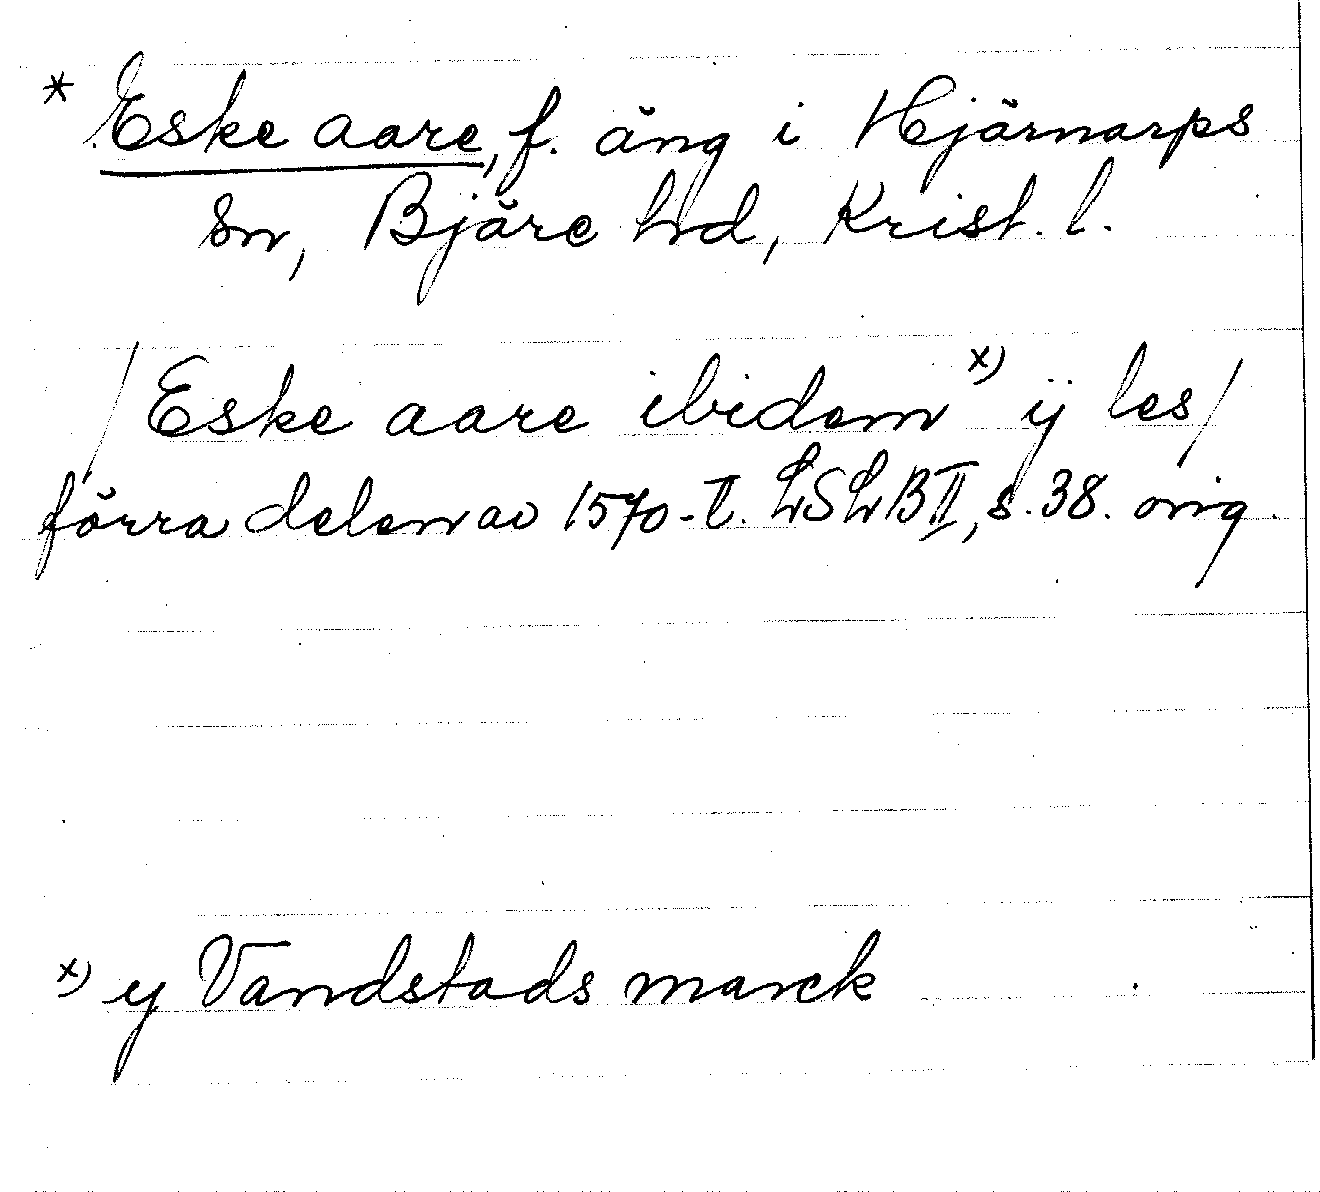 * Eske aare, f. äng i Hjärnarps
sn, Bjäre hd, Krist. l.
/ Eske aare ibidem x) ij les /
förra delen av 1570-t. LSLB II, s. 38. orig.
x) y Vandstads marck